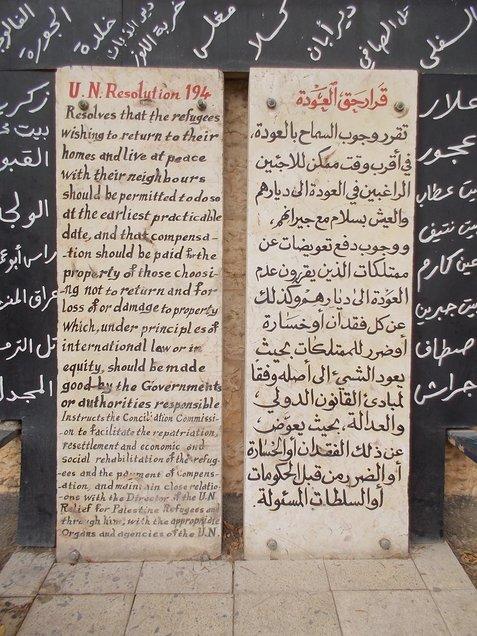 السفلى
تل الصافي
دير أبان
كسلا
مغلس
خربة اللوز
دير الذبان
خلدة
الجورة
الفالوجة
زكريا
القبو
الولجة
عراق المنشية
المجدل
U.N. Resolution 194
Resolves that the refugees
wishing to return to their
homes and live at peace
with their neighbours
should be permitted to do so
at the earliest practicable
date, and that compensa-
tion should be paid for the
property of those choosi-
ng not to return and for
loss of or damage to property
which, under principles of
international law or in
equity, should be made
good by the Governments
or authorities responsible
Instructs the Conciliation Commissi-
on to facilitate the repatriation,
resettlement and economic and
social rehabilitation of the refug-
ees and the payment of compens-
ation, and maintain close relatio-
ons with the Director of the U.N.
Relief for Palestine Refugees and
through him, with the appropriate
Organs and agencies of the U.N.
قرار حق العودة
تقرر وجوب السماح بالعودة،
في أقرب وقت ممكن للاجئين
الراغبين في العودة الى ديارهم
والعيش بسلام مع جيرانهم،
ووجوب دفع تعويضات عن
ممتلكات الذين يقررون عدم
العودة الى ديارهم وكذلك
عن كل فقدان أو خسارة
أو ضرر للممتلكات بحيث
يعود الشيء الى أصله وفقا
لمبادئ القانون الدولي
والعدالة، بحيث يعوّض
عن ذلك الفقدان أو الخسارة
أو الضرر من قبل الحكومات
أو السلطات المسئولة.
عجور
بيت عطاب
بيت نتيف
عين كارم
بيت جبرين
جراش